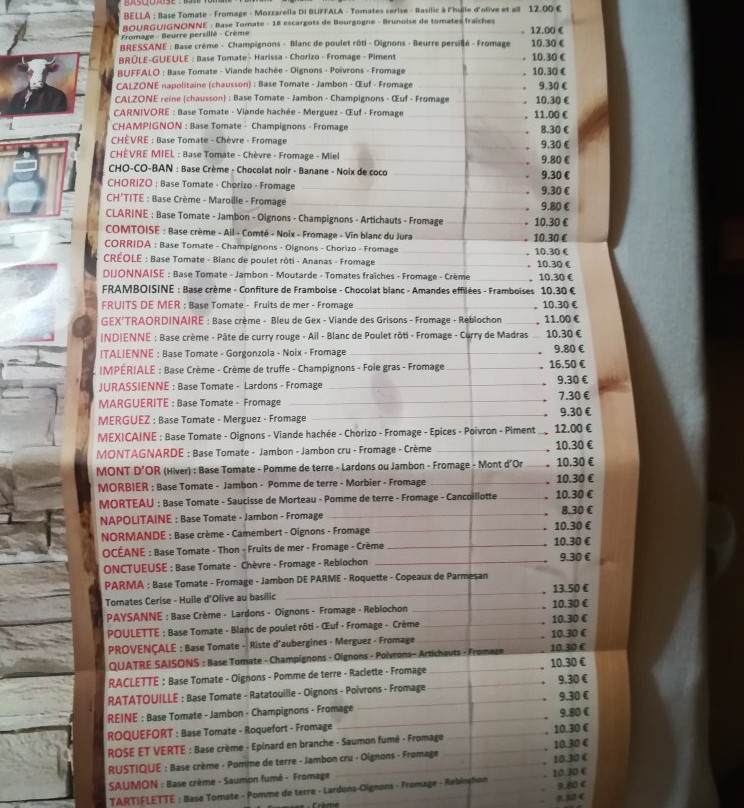 BELLA : Base Tomate - Fromage - Mozzarella DI BUFFALA - Tomates cerise - Basilic à l'huile d'olive et ail 12.00 €
BOURGUIGNONNE : Base Tomate - 18 escargots de Bourgogne - Brunoise de tomates fraîches
Fromage - Beurre persillé - Crème 12.00 €
BRESSANE : Base crème - Champignons - Blanc de poulet rôti - Oignons - Beurre persillé - Fromage 10.30 €
BRÛLE-GUEULE : Base Tomate - Harissa - Chorizo - Fromage - Piment 10.30 €
BUFFALO : Base Tomate - Viande hachée - Oignons - Poivrons - Fromage 10.30 €
CALZONE napolitaine (chausson) : Base Tomate - Jambon - Œuf - Fromage 9.30 €
CALZONE reine (chausson) : Base Tomate - Jambon - Champignons - Œuf - Fromage 10.30 €
CARNIVORE : Base Tomate - Viande hachée - Merguez - Œuf - Fromage 11.00 €
CHAMPIGNON : Base Tomate - Champignons - Fromage 8.30 €
CHÈVRE : Base Tomate - Chèvre - Fromage 9.30 €
CHÈVRE MIEL : Base Tomate - Chèvre - Fromage - Miel 9.80 €
CHO-CO-BAN : Base Crème - Chocolat noir - Banane - Noix de coco 9.30 €
CHORIZO : Base Tomate - Chorizo - Fromage 9.30 €
CH'TITE : Base Crème - Maroille - Fromage 9.80 €
CLARINE : Base Tomate - Jambon - Oignons - Champignons - Artichauts - Fromage 10.30 €
COMTOISE : Base crème - Ail - Comté - Noix - Fromage - Vin blanc du Jura 10.30 €
CORRIDA : Base Tomate - Champignons - Oignons - Chorizo - Fromage 10.30 €
CRÉOLE : Base Tomate - Blanc de poulet rôti - Ananas - Fromage 10.30 €
DIJONNAISE : Base Tomate - Jambon - Moutarde - Tomates fraîches - Fromage - Crème 10.30 €
FRAMBOISINE : Base crème - Confiture de Framboise - Chocolat blanc - Amandes effilées - Framboises 10.30 €
FRUITS DE MER : Base Tomate - Fruits de mer - Fromage 10.30 €
GEX'TRAORDINAIRE : Base crème - Bleu de Gex - Viande des Grisons - Fromage - Reblochon 11.00 €
INDIENNE : Base crème - Pâte de curry rouge - Ail - Blanc de Poulet rôti - Fromage - Curry de Madras 10.30 €
ITALIENNE : Base Tomate - Gorgonzola - Noix - Fromage 9.80 €
IMPÉRIALE : Base Crème - Crème de truffe - Champignons - Foie gras - Fromage 16.50 €
JURASSIENNE : Base Tomate - Lardons - Fromage 9.30 €
MARGUERITE : Base Tomate - Fromage 7.30 €
MERGUEZ : Base Tomate - Merguez - Fromage 9.30 €
MEXICAINE : Base Tomate - Oignons - Viande hachée - Chorizo - Fromage - Epices - Poivron - Piment 12.00 €
MONTAGNARDE : Base Tomate - Jambon - Jambon cru - Fromage - Crème 10.30 €
MONT D'OR (Hiver) : Base Tomate - Pomme de terre - Lardons ou Jambon - Fromage - Mont d'Or 10.30 €
MORBIER : Base Tomate - Jambon - Pomme de terre - Morbier - Fromage 10.30 €
MORTEAU : Base Tomate - Saucisse de Morteau - Pomme de terre - Fromage - Cancoillotte 10.30 €
NAPOLITAINE : Base Tomate - Jambon - Fromage 8.30 €
NORMANDE : Base crème - Camembert - Oignons - Fromage 10.30 €
OCÉANE : Base Tomate - Thon - Fruits de mer - Fromage - Crème 10.30 €
ONCTUEUSE : Base Tomate - Chèvre - Fromage - Reblochon 9.30 €
PARMA : Base Tomate - Fromage - Jambon DE PARME - Roquette - Copeaux de Parmesan
Tomates Cerise - Huile d'Olive au basilic 13.50 €
PAYSANNE : Base Crème - Lardons - Oignons - Fromage - Reblochon 10.30 €
POULETTE : Base Tomate - Blanc de poulet rôti - Œuf - Fromage - Crème 10.30 €
PROVENÇALE : Base Tomate - Riste d'aubergines - Merguez - Fromage 10.30 €
QUATRE SAISONS : Base Tomate - Champignons - Oignons - Poivrons - Artichauts - Fromage 10.30 €
RACLETTE : Base Tomate - Oignons - Pomme de terre - Raclette - Fromage 10.30 €
RATATOUILLE : Base Tomate - Ratatouille - Oignons - Poivrons - Fromage 9.30 €
REINE : Base Tomate - Jambon - Champignons - Fromage 9.30 €
ROQUEFORT : Base Tomate - Roquefort - Fromage 9.80 €
ROSE ET VERTE : Base crème - Epinard en branche - Saumon fumé - Fromage 10.30 €
RUSTIQUE : Base crème - Pomme de terre - Jambon cru - Oignons - Fromage 10.30 €
SAUMON : Base crème - Saumon fumé - Fromage 10.30 €
TARTIFLETTE : Base Tomate - Pomme de terre - Lardons - Oignons - Fromage - Reblochon 10.30 €